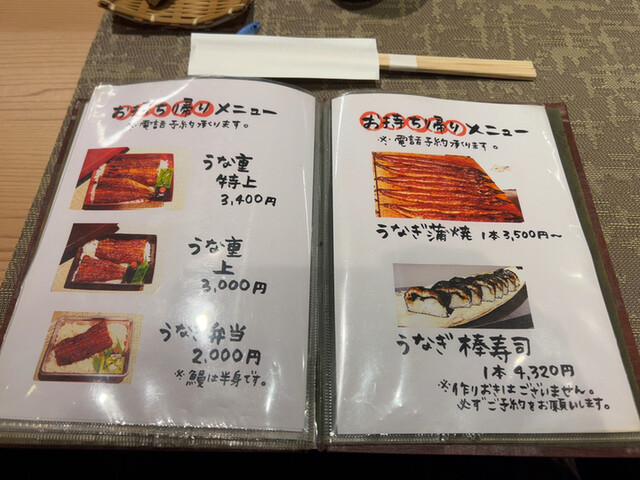 お持ち帰りメニュー
※電話予約承ります。
うな重
特上
3,400円
うな重
上
3,000円
うなぎ弁当
2,000円
※鰻は半身です。
お持ち帰りメニュー
※電話予約承ります。
うなぎ蒲焼 1本3,500円〜
うなぎ棒寿司
1本 4,320円
※作りおきはございません。
必ずご予約をお願いします。